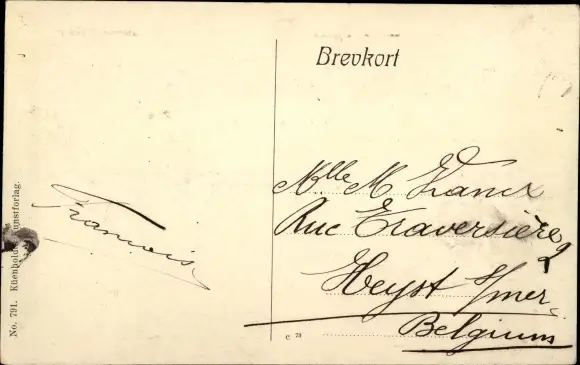 Brevkort
Mlle M Franck
Rue Traversière 2
Heyst s/mer
Belgium
François
No. 791. Küenholds Kunstforlag.
C 73